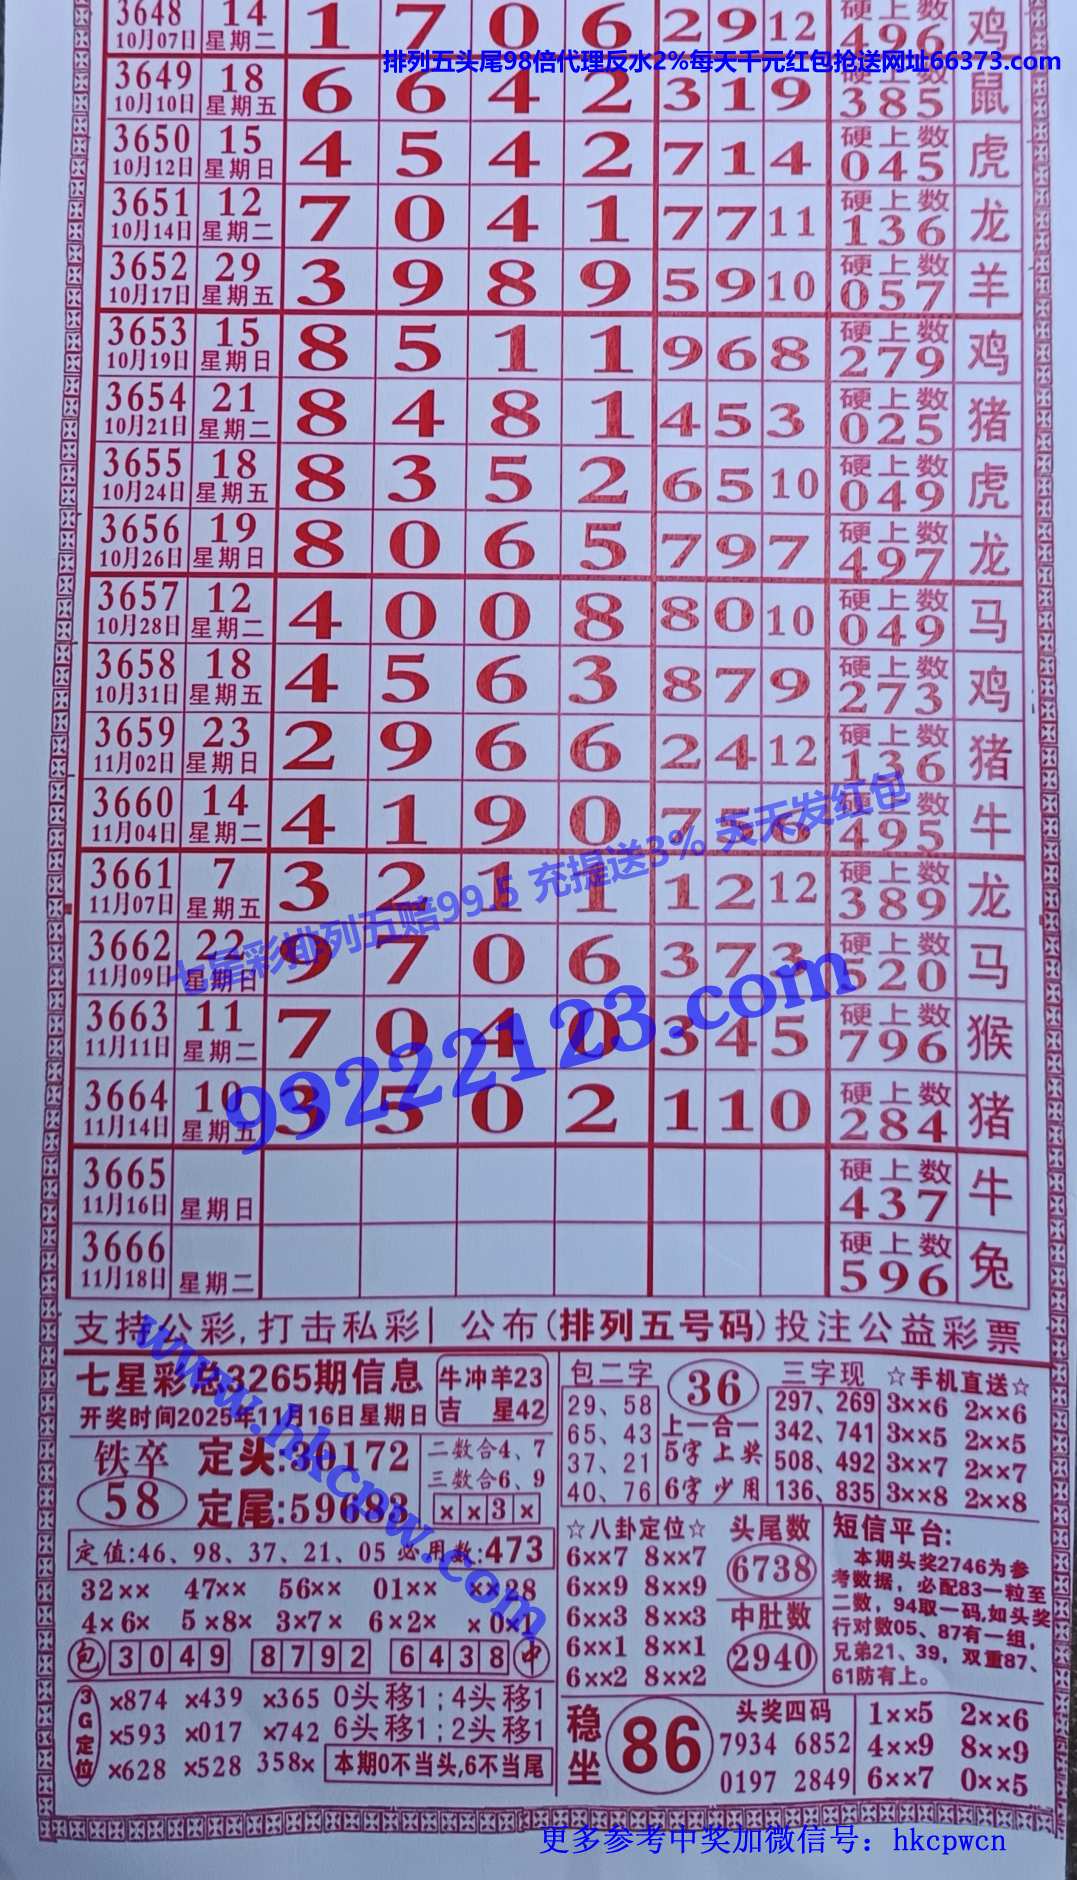 3648 14 1 7 0 6 2 9 12 硬上数 鸡
10月07日 星期二 496
排列五头尾98倍代理反水2%每天千元红包抢送网址66373.com
3649 18 6 6 4 2 3 1 9 硬上数 鼠
10月10日 星期五 385
3650 15 4 5 4 2 7 1 4 硬上数 虎
10月12日 星期日 045
3651 12 7 0 4 1 7 7 11 硬上数 龙
10月14日 星期二 136
3652 29 3 9 8 9 5 9 10 硬上数 羊
10月17日 星期五 057
3653 15 8 5 1 1 9 6 8 硬上数 鸡
10月19日 星期日 279
3654 21 8 4 8 1 4 5 3 硬上数 猪
10月21日 星期二 025
3655 18 8 3 5 2 6 5 10 硬上数 虎
10月24日 星期五 049
3656 19 8 0 6 5 7 9 7 硬上数 龙
10月26日 星期日 497
3657 12 4 0 0 8 8 0 10 硬上数 马
10月28日 星期二 049
3658 18 4 5 6 3 8 7 9 硬上数 鸡
10月31日 星期五 273
3659 23 2 9 6 6 2 4 12 硬上数 猪
11月02日 星期日 136
3660 14 4 1 9 0 7 5 6 硬上数 牛
11月04日 星期二 495
3661 7 3 2 1 1 1 2 12 硬上数 龙
11月07日 星期五 389
七星彩排列五赔99.5 充提送3% 天天发红包
3662 22 9 7 0 6 3 7 3 硬上数 马
11月09日 星期日 520
3663 11 7 0 4 0 3 4 5 硬上数 猴
11月11日 星期二 796
99222123.com
3664 10 3 5 0 2 1 1 0 硬上数 猪
11月14日 星期五 284
3665 硬上数 牛
11月16日 星期日 437
3666 硬上数 兔
11月18日 星期二 596
支持公彩,打击私彩 公布(排列五号码)投注公益彩票
www.hkcpw.com
七星彩总3265期信息
开奖时间2025年11月16日星期日
牛冲羊23
吉 星42
铁卒 58
定头:30172
定尾:59683
二数合4、7
三数合6、9
××3×
定值:46、98、37、21、05 必用数:473
32×× 47×× 56×× 01×× ××28
4×6× 5×8× 3×7× 6×2× ×0×1
包 3049 8792 6438 中
3G定位
×874 ×439 ×365 0头移1;4头移1
×593 ×017 ×742 6头移1;2头移1
×628 ×528 358× 本期0不当头,6不当尾
包二字
29、58
65、43
37、21
40、76
36
上一合一
5字上奖
6字少用
三字现
297、269
342、741
508、492
136、835
☆手机直送☆
3××6 2××6
3××5 2××5
3××7 2××7
3××8 2××8
☆八卦定位☆
6××7 8××7
6××9 8××9
6××3 8××3
6××1 8××1
6××2 8××2
头尾数
6738
中肚数
2940
短信平台:
本期头奖2746为参
考数据，必配83一粒至
二数，94取一码,如头奖
行对数05、87有一组，
兄弟21、39，双重87、
61防有上。
稳坐 86
头奖四码
7934 6852
0197 2849
1××5 2××6
4××9 8××9
6××7 0××5
更多参考中奖加微信号：hkcpwcn